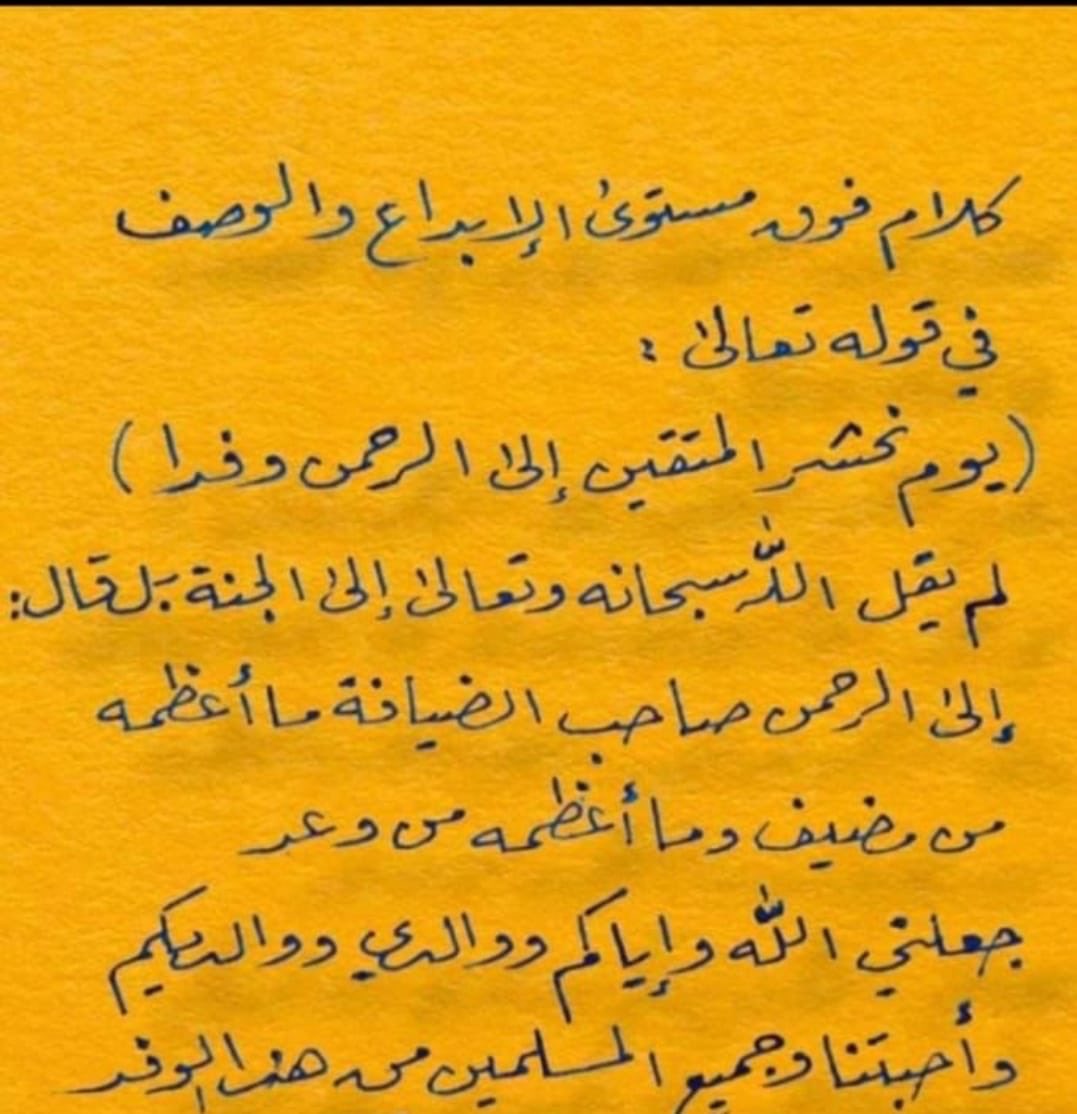 كلام فوق مستوى الإبداع والوصف
في قوله تعالى :
(يوم نحشر المتقين إلى الرحمن وفدا)
لم يقل الله سبحانه وتعالى إلى الجنة بل قال:
إلى الرحمن صاحب الضيافة ما أعظمه
من مضيف وما أعظمه من وعد
جعلني الله وإياكم ووالدي ووالديكم
وأحبتنا وجميع المسلمين من هذا الوفد